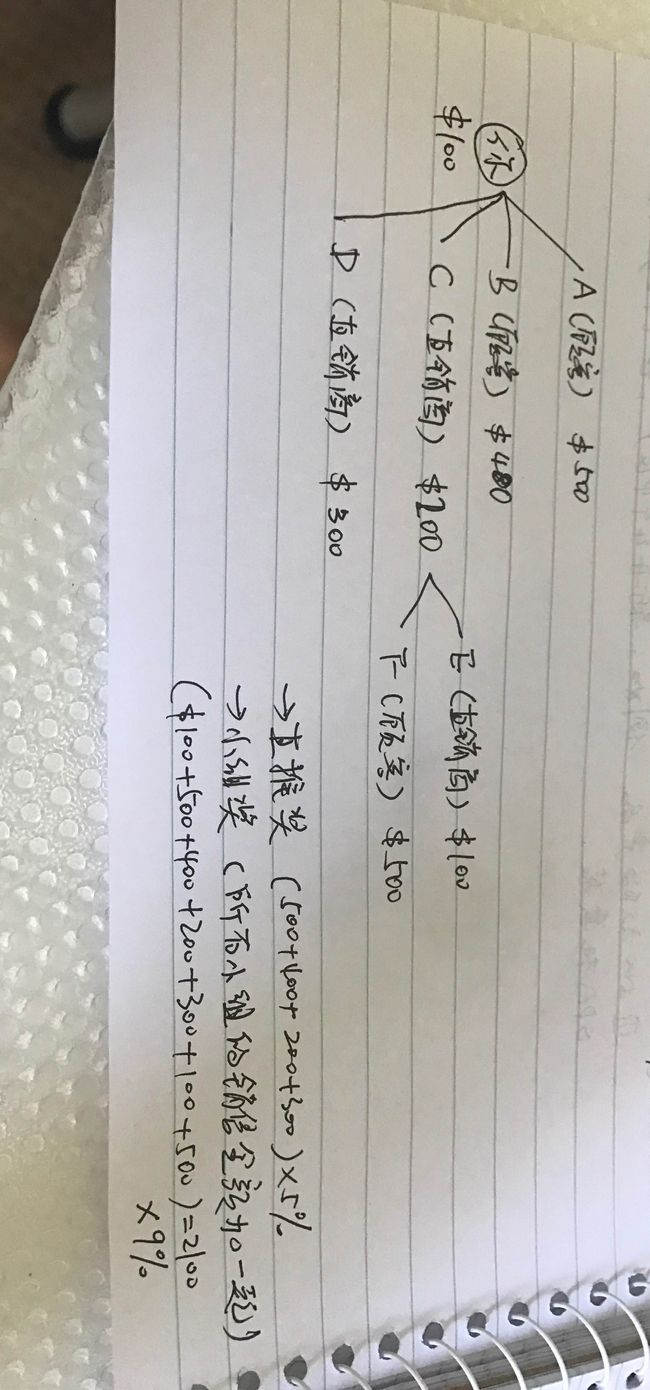 A（顾客）$500
你
$100
B（顾客）$400
C（直销商）$200
E（直销商）$100
F（顾客）$500
D（直销商）$300
→直推奖（500+400+200+300）×5%
→小组奖（所有小组的销售全部加一起）
（$100+500+400+200+300+100+500）=2100
×9%